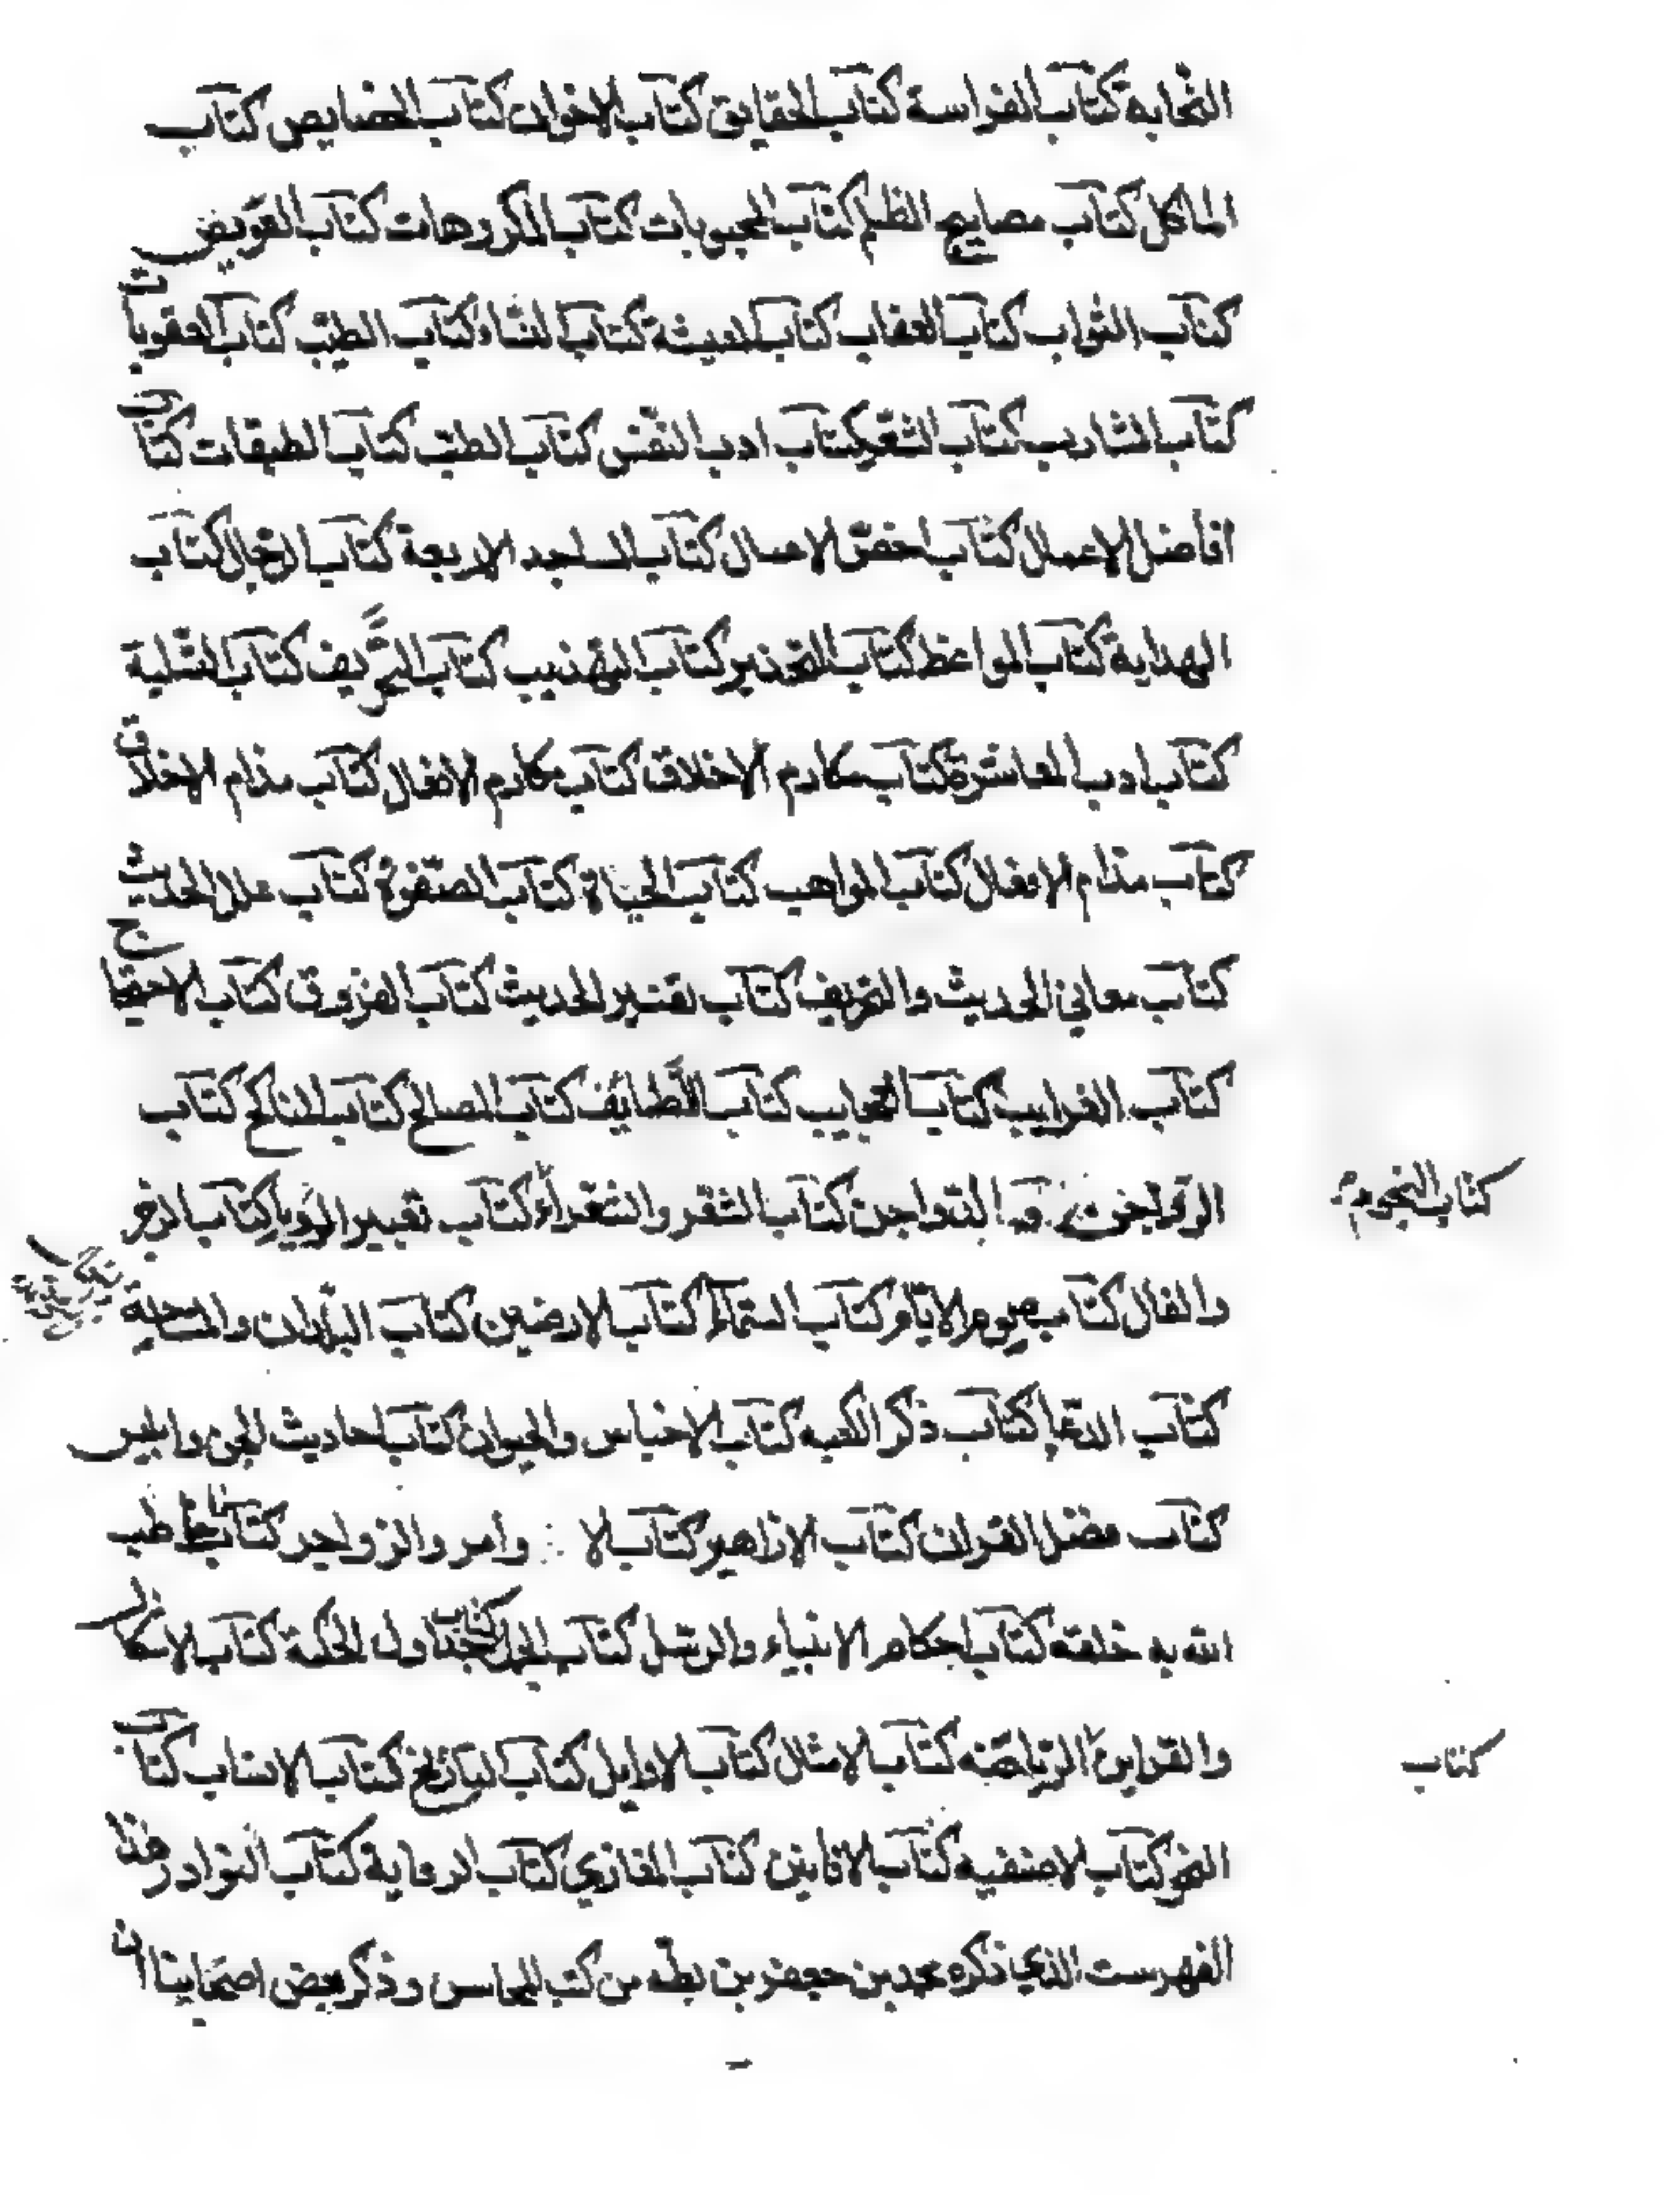 النجابة كتاب الفراسة كتاب الحقايق كتاب الاخوان كتاب الخصايص كتاب
الماكل كتاب مصابيح الظلم كتاب المحبوبات كتاب المكروهات كتاب العويض
كتاب الثواب كتاب العقاب كتاب المعيشة كتاب النساء كتاب الطيب كتاب العقوبات
كتاب المشارب كتاب الشعر كتاب ادب النفس كتاب الطب كتاب الطبقات كتاب
افاضل الاعمال كتاب اخص الاعمال كتاب المساجد الاربعة كتاب الرجال كتاب
الهداية كتاب المواعظ كتاب التحذير كتاب التهذيب كتاب التحريف كتاب التسلية
كتاب ادب المعاشرة كتاب مكارم الاخلاق كتاب مكارم الافعال كتاب مذام الاخلاق
كتاب مذام الافعال كتاب المواهب كتاب الحياة كتاب الصفوة كتاب علل الحديث
كتاب معاني الحديث والتحريف كتاب تفسير الحديث كتاب الفروق كتاب الاحتجاج
كتاب الغرايب كتاب العجايب كتاب اللطايف كتاب المصالح كتاب المنافع كتاب
كتاب الشعر والشعراء كتاب تعبير الرويا كتاب الزجر
كتاب النجوم
والفال كتاب صوم الايام كتاب السماء كتاب الارضين كتاب البلدان والمساحة
كتاب الدعا كتاب ذكر الكعبه كتاب الاجناس والحيوان كتاب احاديث الجن وابليس
كتاب فضل القران كتاب الازاهير كتاب الا وامر والزواجر كتاب ما خاطب
الله به خلقه كتاب احكام الانبياء والرسل كتاب الجمل كتاب جداول الحكمة كتاب الاشكال
والقراين الرياضه كتاب الامثال كتاب الاوايل كتاب التاريخ كتاب الانساب كتاب
كتاب
النحو كتاب الاصفيه كتاب الافانين كتاب المغازي كتاب الرواية كتاب النوادر هذا
الفهرست الذي ذكره محمد بن جعفر بن بطه من كتب المحاسن وذكر بعض اصحابنا ان